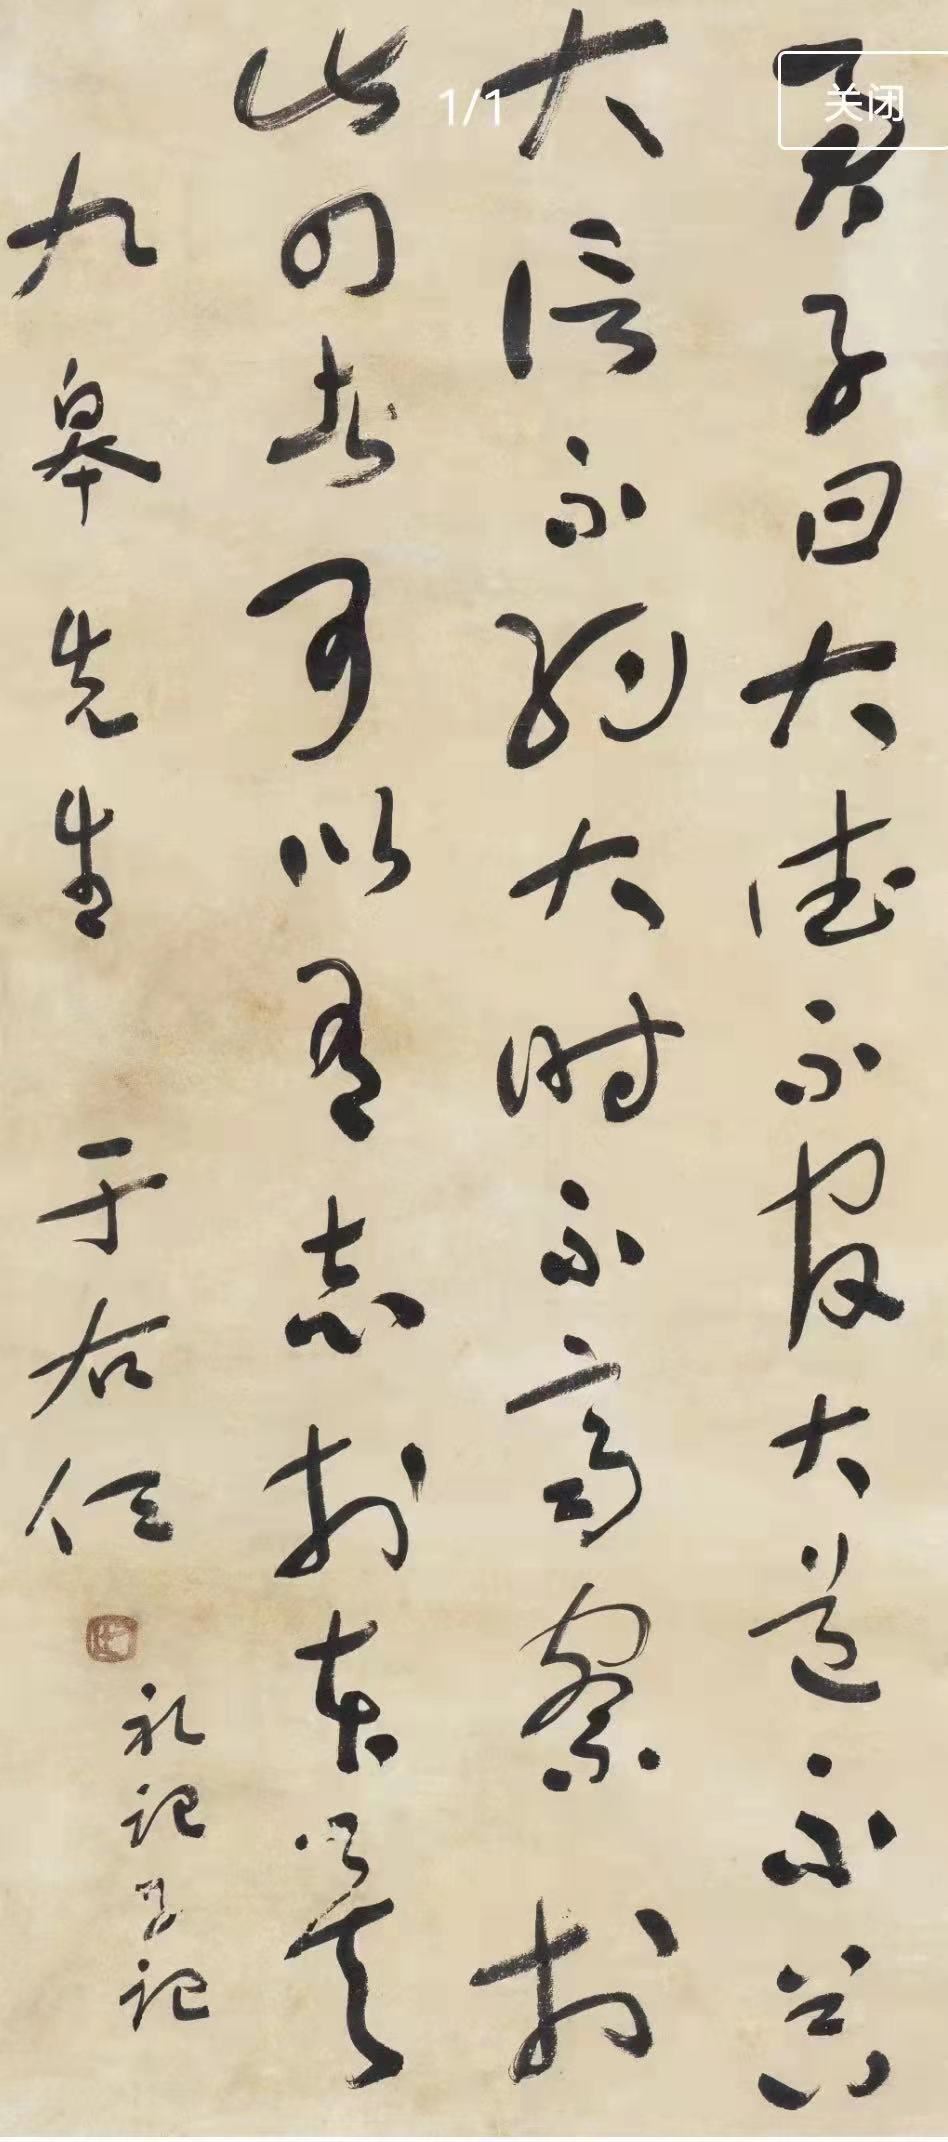 1/1
关闭
君子曰大德不官大道不器
大信不約大時不齊察於
此四者可以有志於本矣
九皋先生 于右任
礼記學記